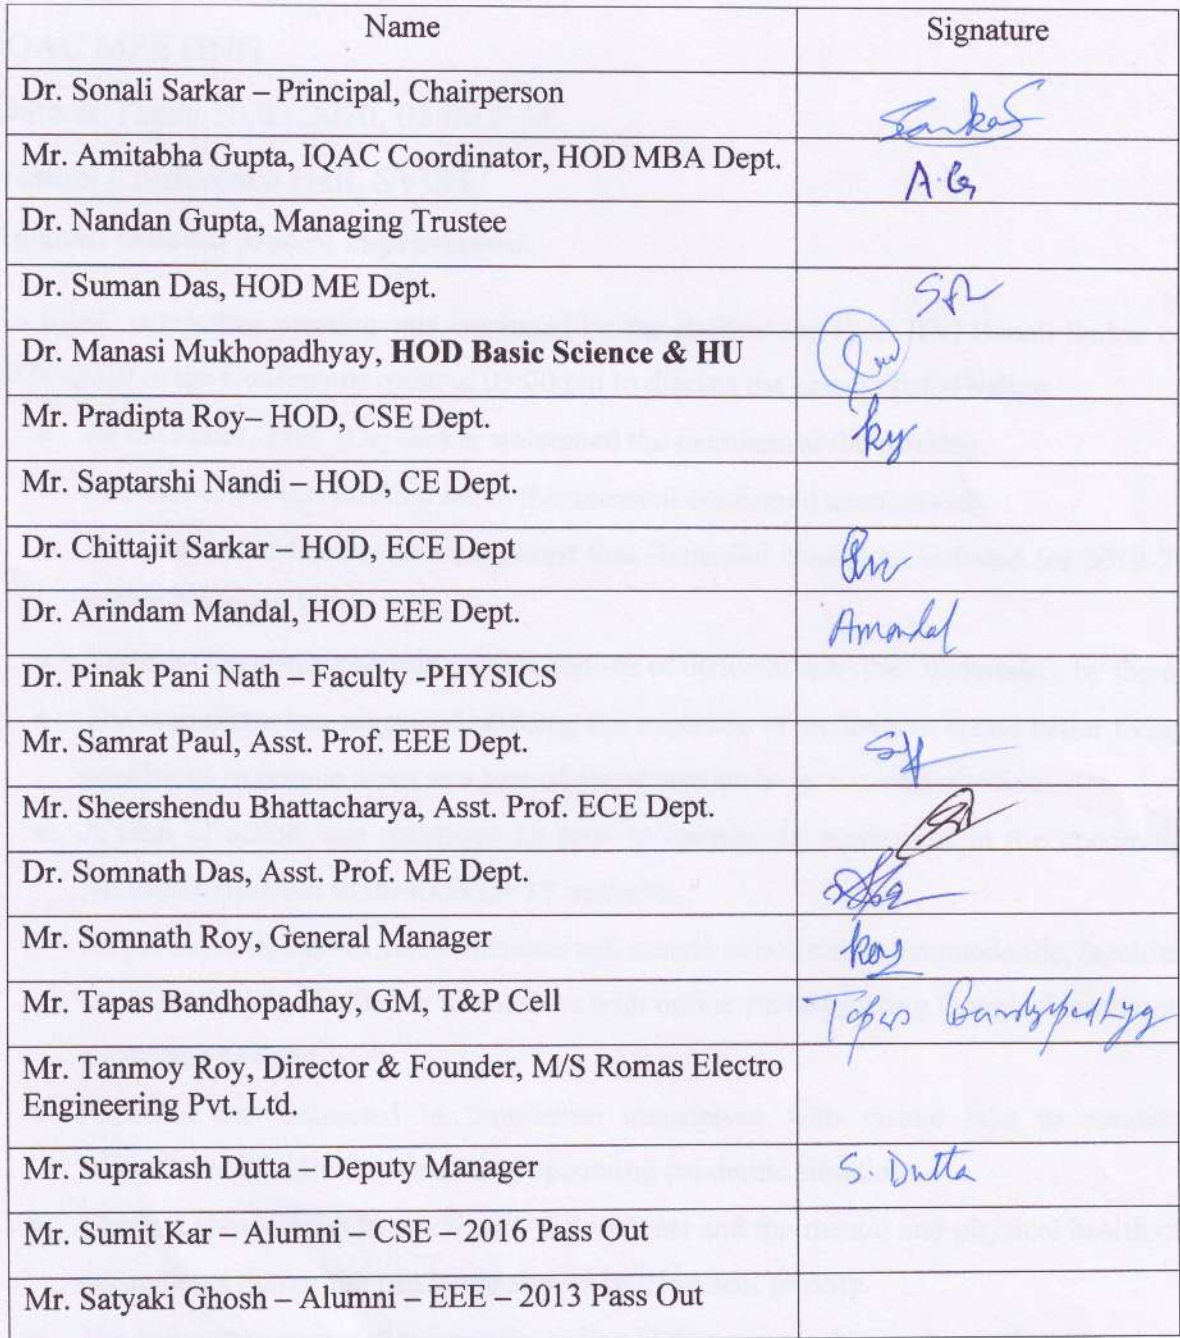 Name Signature
Dr. Sonali Sarkar – Principal, Chairperson Sarkar
Mr. Amitabha Gupta, IQAC Coordinator, HOD MBA Dept. A.G
Dr. Nandan Gupta, Managing Trustee
Dr. Suman Das, HOD ME Dept.
Dr. Manasi Mukhopadhyay, HOD Basic Science & HU
Mr. Pradipta Roy– HOD, CSE Dept.
Mr. Saptarshi Nandi – HOD, CE Dept.
Dr. Chittajit Sarkar – HOD, ECE Dept
Dr. Arindam Mandal, HOD EEE Dept. Amandal
Dr. Pinak Pani Nath – Faculty -PHYSICS
Mr. Samrat Paul, Asst. Prof. EEE Dept.
Mr. Sheershendu Bhattacharya, Asst. Prof. ECE Dept.
Dr. Somnath Das, Asst. Prof. ME Dept.
Mr. Somnath Roy, General Manager Roy
Mr. Tapas Bandhopadhay, GM, T&P Cell Tapas Bandyopadhyay
Mr. Tanmoy Roy, Director & Founder, M/S Romas Electro
Engineering Pvt. Ltd.
Mr. Suprakash Dutta – Deputy Manager S. Dutta
Mr. Sumit Kar – Alumni – CSE – 2016 Pass Out
Mr. Satyaki Ghosh – Alumni – EEE – 2013 Pass Out